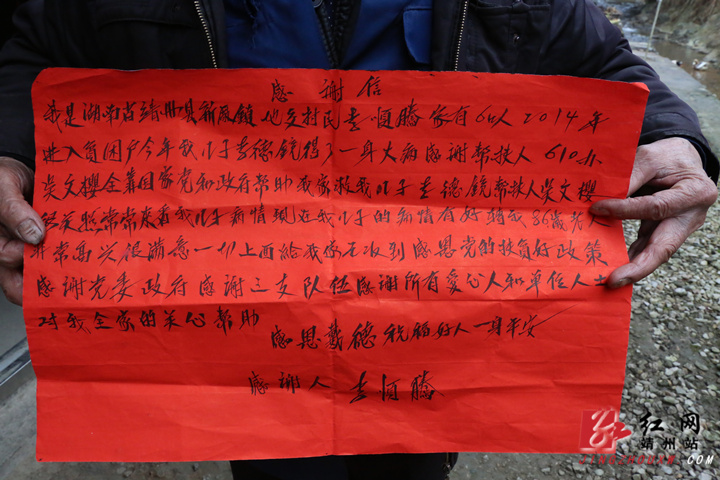 感谢信
我是湖南省靖州县新厂镇地交村民李顺腾家有6口人2014年
进入贫困户今年我儿子李德锐得了一身大病感谢帮扶人610办
吴文樱全靠国家党和政府帮助我家救我儿子李德锐帮扶人吴文樱
经常来看我儿子病情现在我儿子的病情有好转我86岁老人
非常高兴很满意一切上面给我家无收到感恩党的扶贫好政策
感谢党委政府感谢三支队伍感谢所有爱心人和单位人士
对我全家的关心帮助
感恩戴德祝福好人一身平安
感谢人 李顺腾
红网
靖州站
.COM